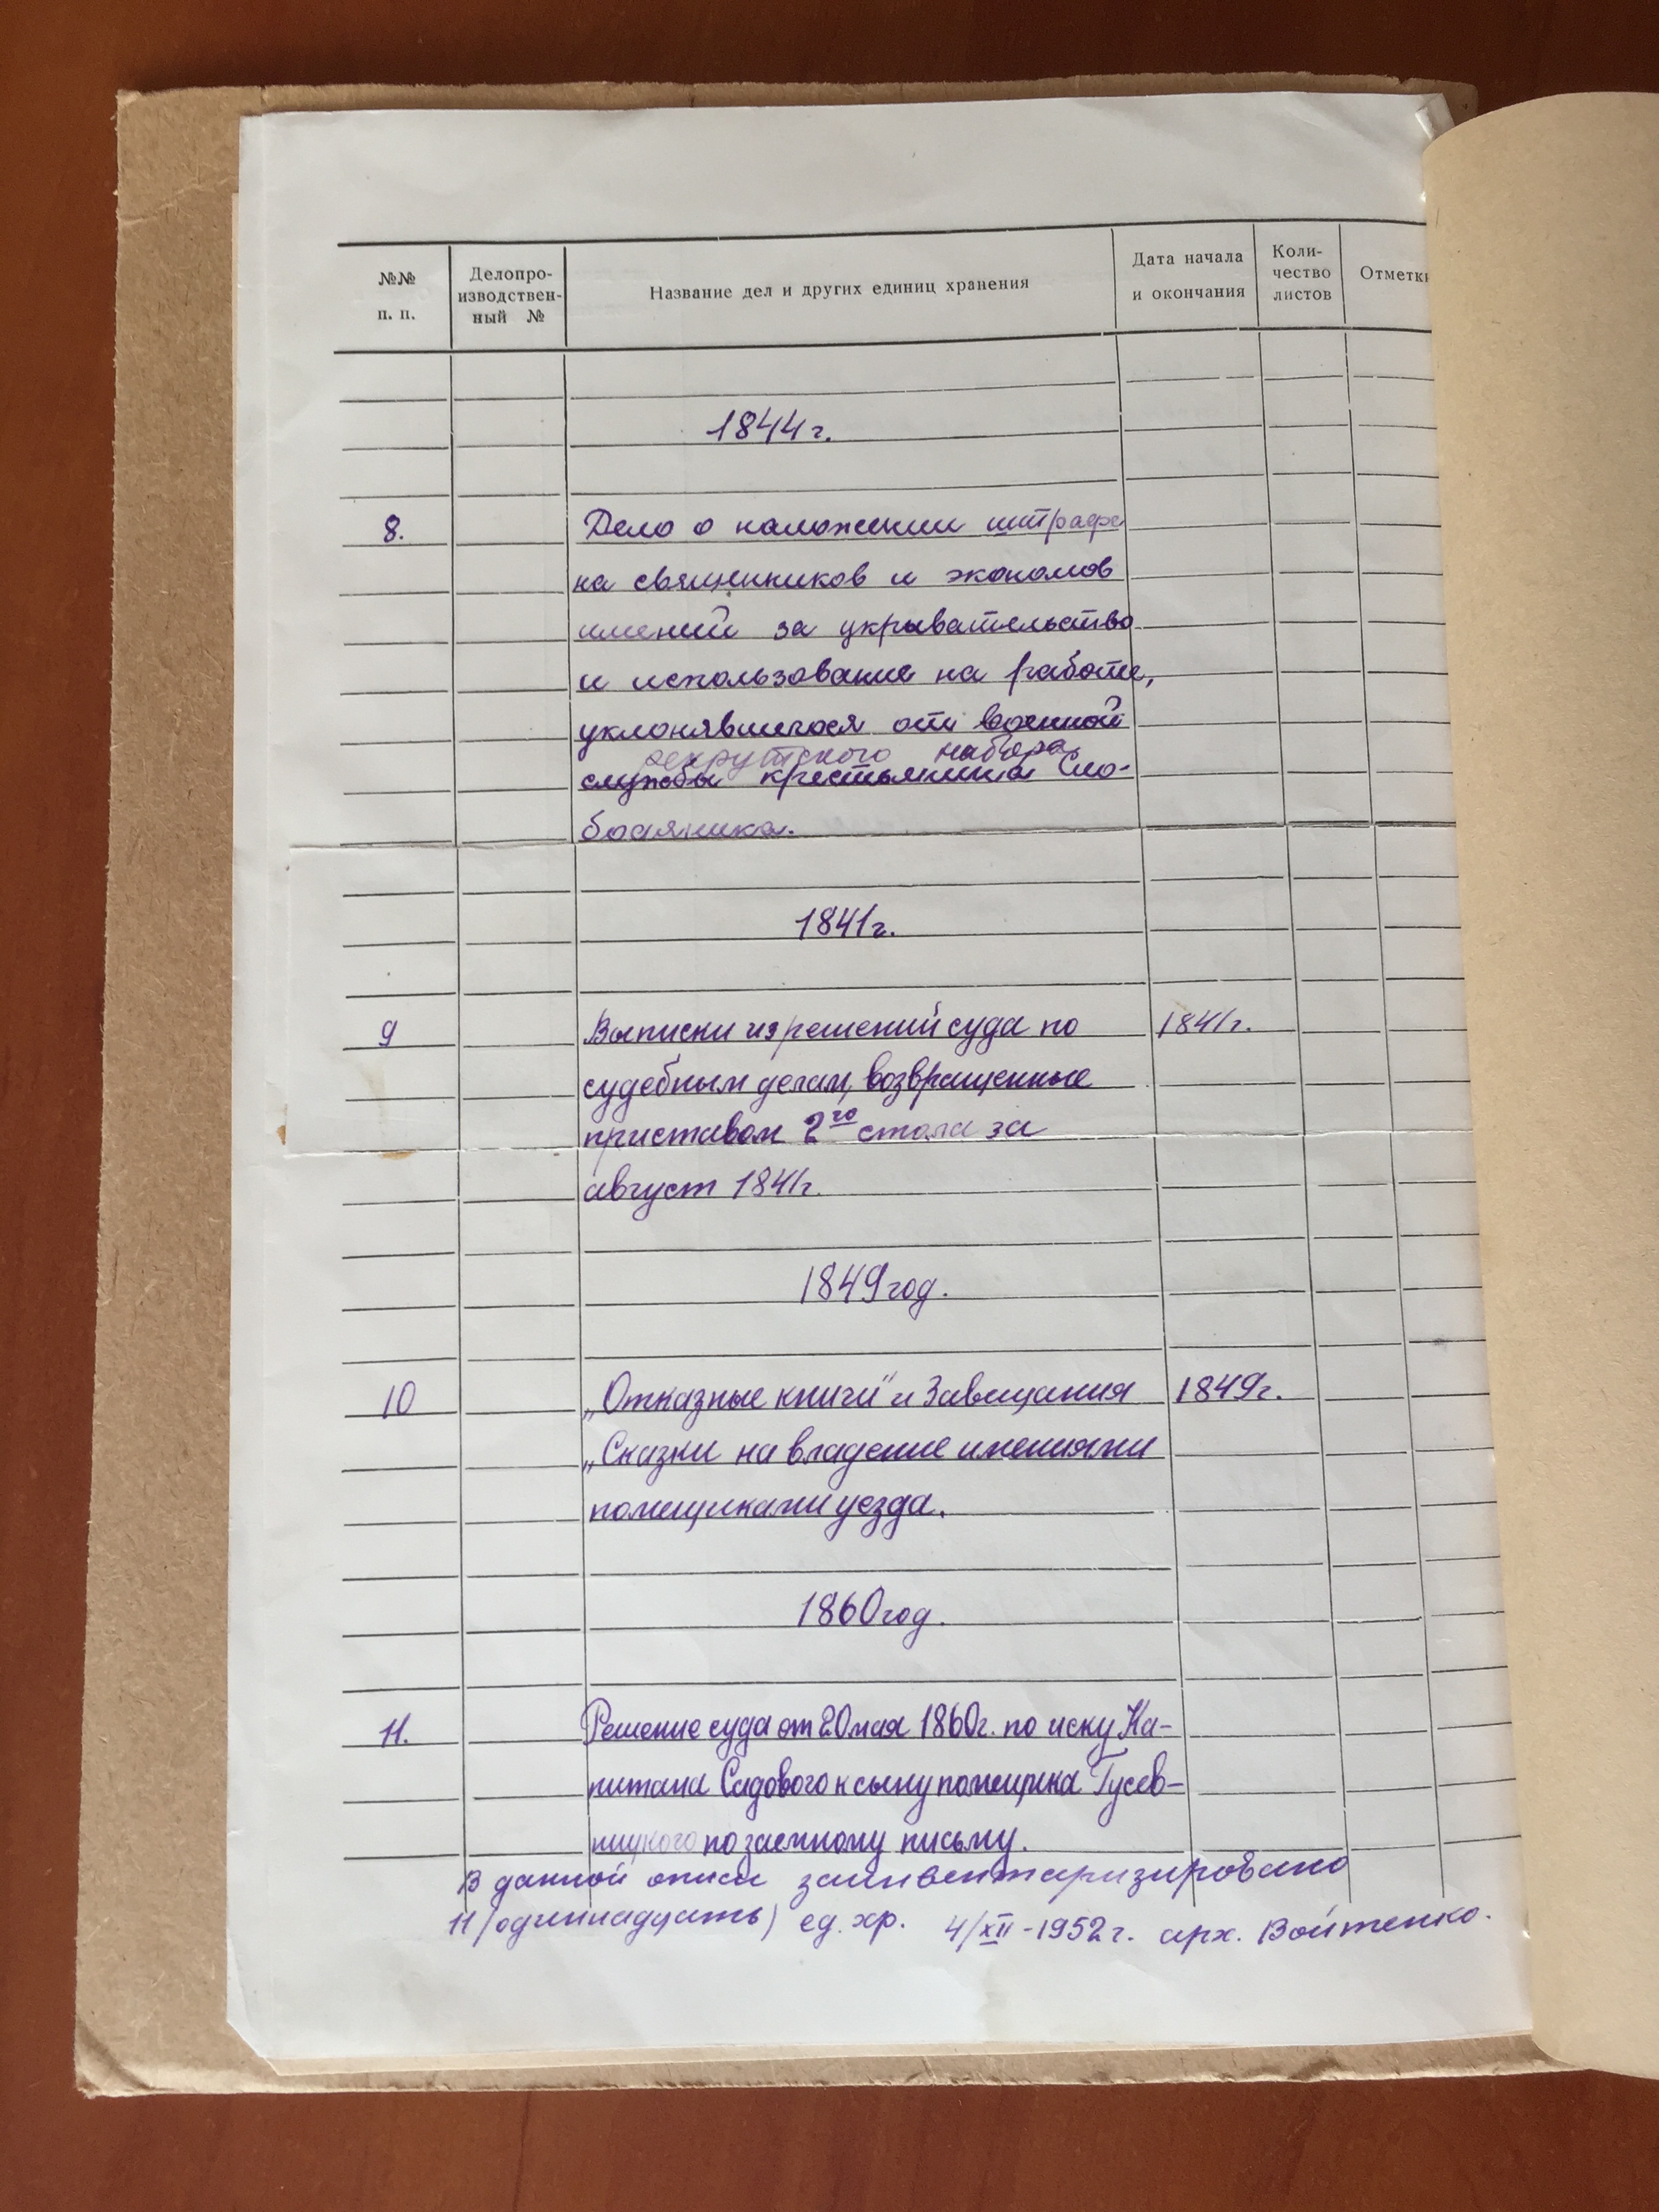 №№ п. п.
Делопро-
изводствен-
ный №
Название дел и других единиц хранения
Дата начала
и окончания
Коли-
чество
листов
Отметк
1844 г.
8.
Дело о наложении штрафа
на священников и экономов
имений за укрывательство
и использование на работе,
уклонявшегося от военной
рекрутского набора
службы крестьянина Сло-
бодяника.
1841 г.
9
Выписки из решений суда по
1841 г.
судебным делам, возвращенные
приставом 2го стола за
август 1841 г.
1849 год.
10
„Отказные книги" и Завещания
1849 г.
„Сказки на владение имениями
помещиками уезда.
1860 год.
11.
Решение суда от 20 мая 1860 г. по иску Ка-
питана Садового к сыну помещика Гусев-
ицкого по заемному письму.
В данной описи заинвентаризировано
11 /одиннадцать) ед. хр. 4/XII - 1952 г. арх. Войтенко.